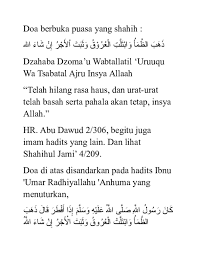 Doa berbuka puasa yang shahih :
ذَهَبَ الظَّمَأُ وَابْتَلَّتِ الْعُرُوْقُ وَثَبَتَ الْأَجْرُ إِنْ شَاءَ اللهُ
Dzahaba Dzoma'u Wabtallatil 'Uruuqu
Wa Tsabatal Ajru Insya Allaah
“Telah hilang rasa haus, dan urat-urat
telah basah serta pahala akan tetap, insya
Allah.”
HR. Abu Dawud 2/306, begitu juga
imam hadits yang lain. Dan lihat
Shahihul Jami' 4/209.
Doa di atas disandarkan pada hadits Ibnu
'Umar Radhiyallahu 'Anhuma yang
menuturkan,
كَانَ رَسُولُ اللَّهِ صَلَّى اللَّهُ عَلَيْهِ وَسَلَّمَ إِذَا أَفْطَرَ قَالَ ذَهَبَ
الظَّمَأُ وَابْتَلَّتِ الْعُرُوْقُ وَثَبَتَ الْأَجْرُ إِنْ شَاءَ اللهُ